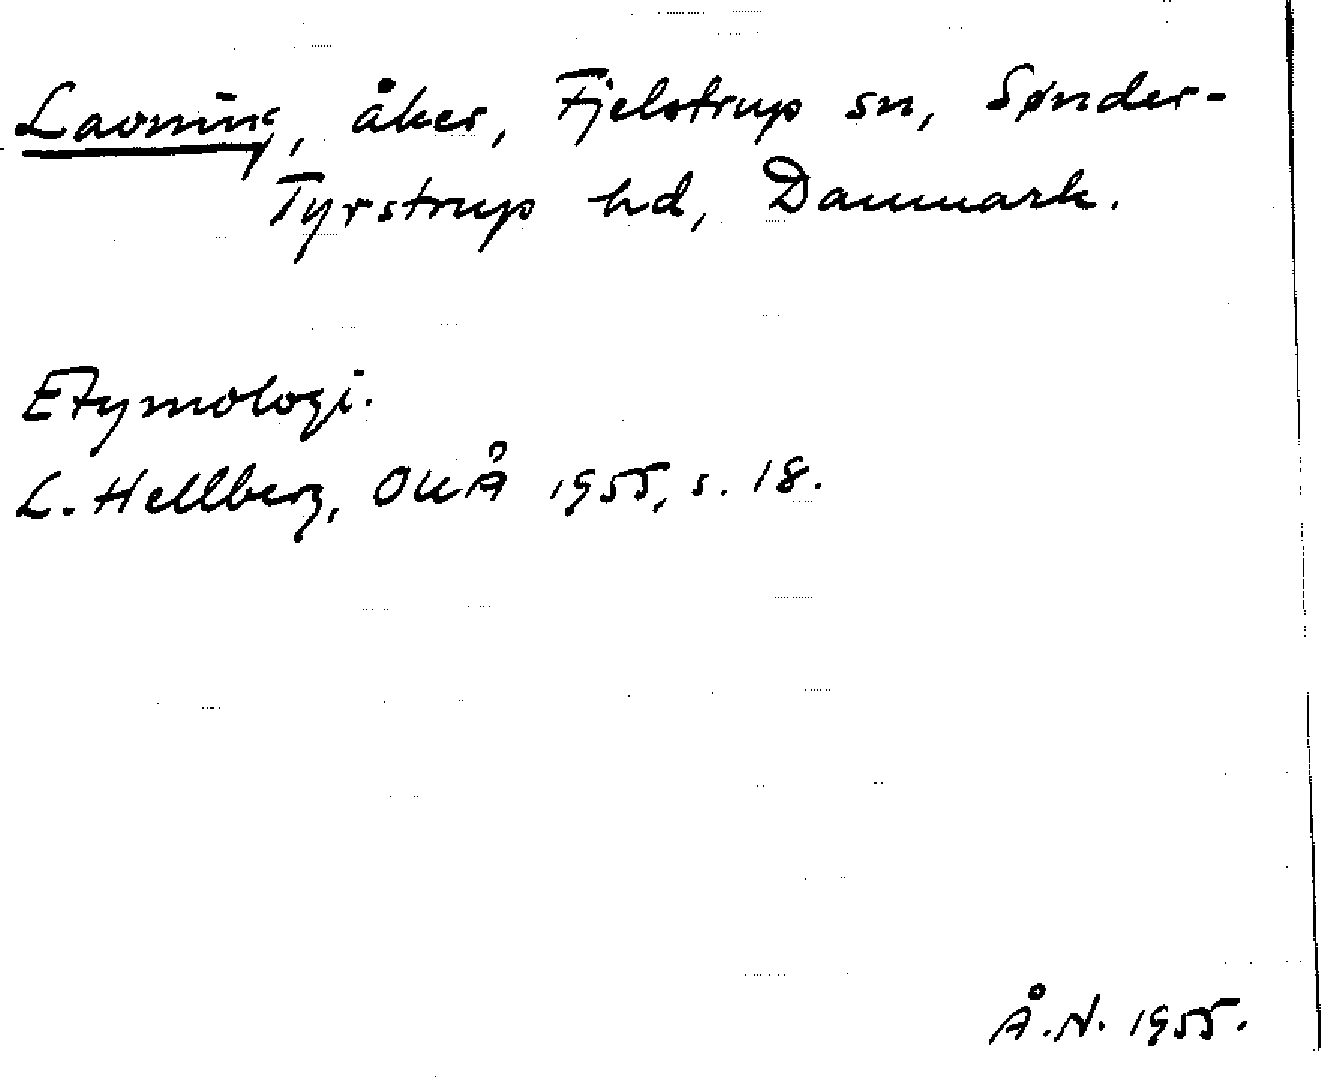 Lavning, åker, Fjelstrup sn, Sønder-
Tyrstrup hd, Danmark.
Etymologi.
L. Hellberg, OUÅ 1955, s. 18.
Å.N. 1955.